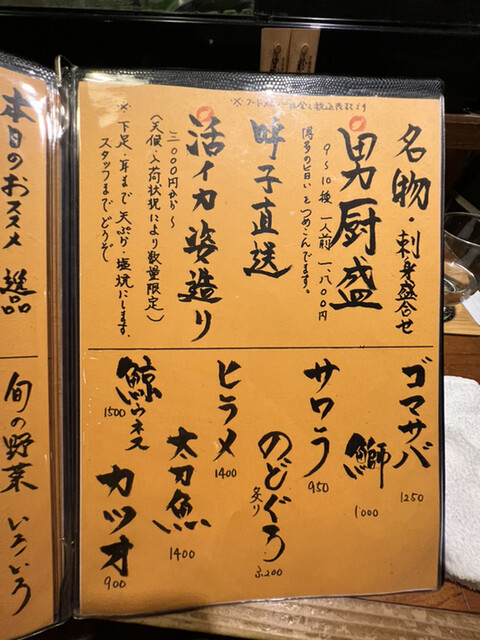 名物・刺身盛合せ
男厨盛
9〜10種 一人前 1,800円
つめこんでます。
呼子直送
活イカ姿造り
三000円から〜
(天候・入荷状況により数量限定)
※下足・耳まで天ぷら、塩焼にします。
スタッフまでどうぞ
ゴマサバ
1250
鰤
1000
サワラ
950
のどぐろ
炙り
2,200
ヒラメ
1400
太刀魚
1400
鯨ウネス
1500
カツオ
900
本日のおススメ 逸品
旬の野菜 いろいろ